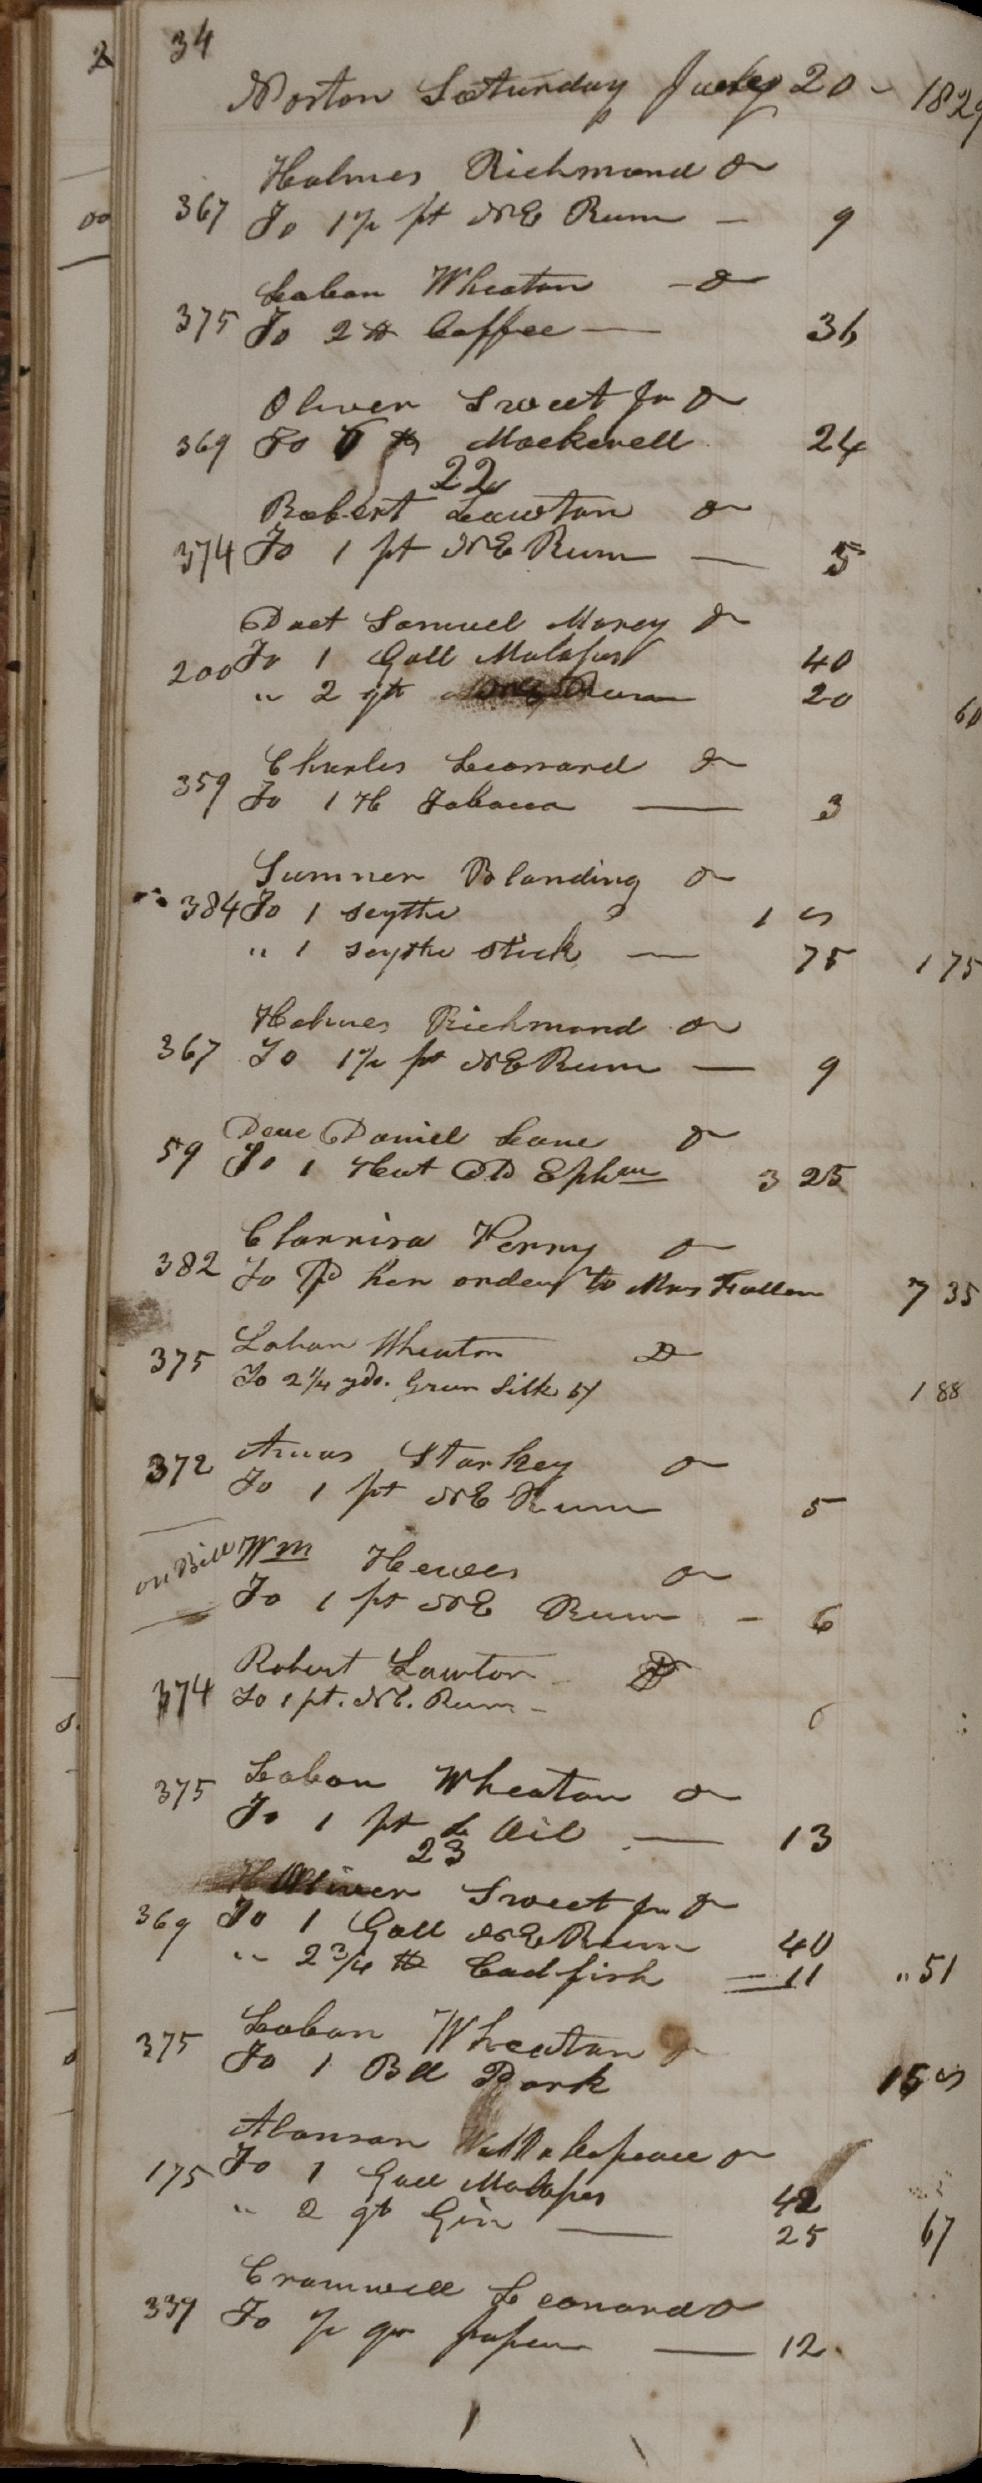 34
Norton Saturday 20 - 1829
Holmes Richmond Dr
367 To 1 1/2 pt NE Rum - 9
Laban Wheaton - Dr
375 To 2 lb Coffee - 36
Oliver Sweet Jr Dr
369 To 6 lb Mackerell 24
22
Robert Lawton Dr
374 To 1 pt NE Rum - 5
Doct Samuel Morey Dr
200 To 1 Gall Molasses 40
" 2 qt NE Rum 20 60
Charles Leonard Dr
359 To 1 H Tobacco - 3
Sumner Blanding Dr
384 To 1 scythe 1 00
" 1 scythe stick - 75 1 75
Holmes Richmond Dr
367 To 1 1/2 pt NE Rum - 9
Daniel Lane Dr
59 To 1 Hat DD Ephm 3 25
Clarrisa Perry Dr
382 To Pd her order to Mrs Fuller 7 35
Laban Wheaton Dr
375 To 2 1/4 yds. Green Silk 5/ 1 88
Amos Starkey Dr
372 To 1 pt NE Rum 5
on Bill Wm Hewes Dr
To 1 pt NE Rum - 6
Robert Lawton Dr
374 To 1 pt. NE. Rum - 6
Laban Wheaton Dr
375 To 1 pt L Oil - 13
23
Oliver Sweet Jr Dr
369 To 1 Gall NE Rum 40
" 2 3/4 lb Codfish - 11 " 51
Laban Wheaton Dr
375 To 1 Bll Pork 15 00
Alanson Dr
175 To 1 Gall Molasses 42
" 2 qt Gin - 25 67
Cromwell Leonard Dr
337 To 1/2 qr paper - 12